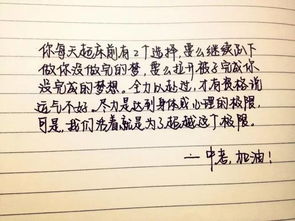 你每天起床前有2个选择,要么继续趴下
做你没做完的梦,要么拉开被子完成你
没完成的梦想。全力以赴过,才有资格说
运气不好。尽力是达到身体或心理的极限,
可是,我们活着就是为了超越这个极限。
——中考,加油!